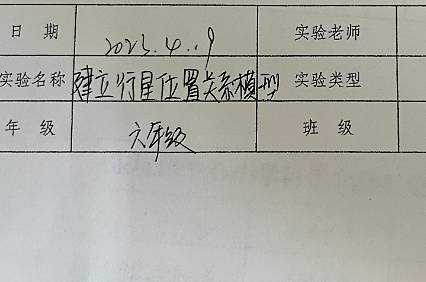 日期 2023.4.9 实验老师
实验名称 建立行星位置关系模型 实验类型
年级 六年级 班级